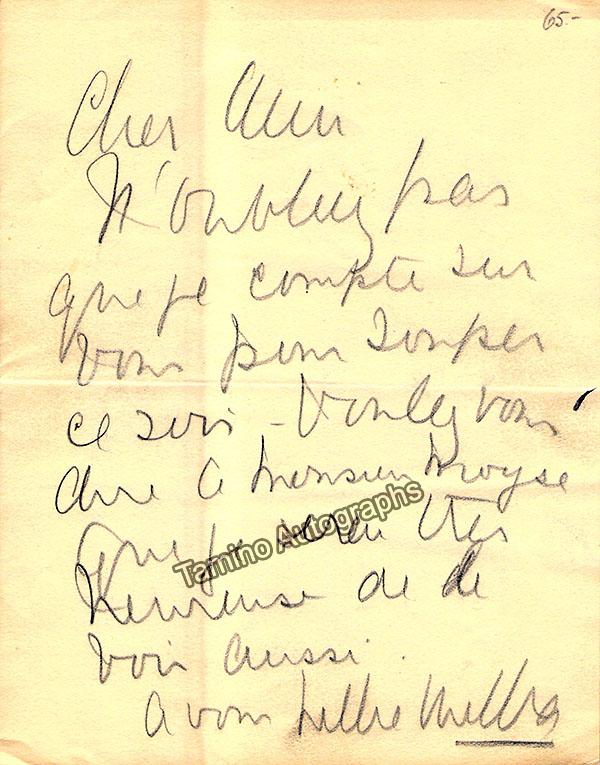 65.-
Cher Ami
N'oubliez pas
que je compte sur
vous pour souper
ce soir - Voulez vous
dire à Monsieur Moyse
que je serai très
heureuse de le
voir aussi.
à vous Nellie Melba
Tamino Autographs